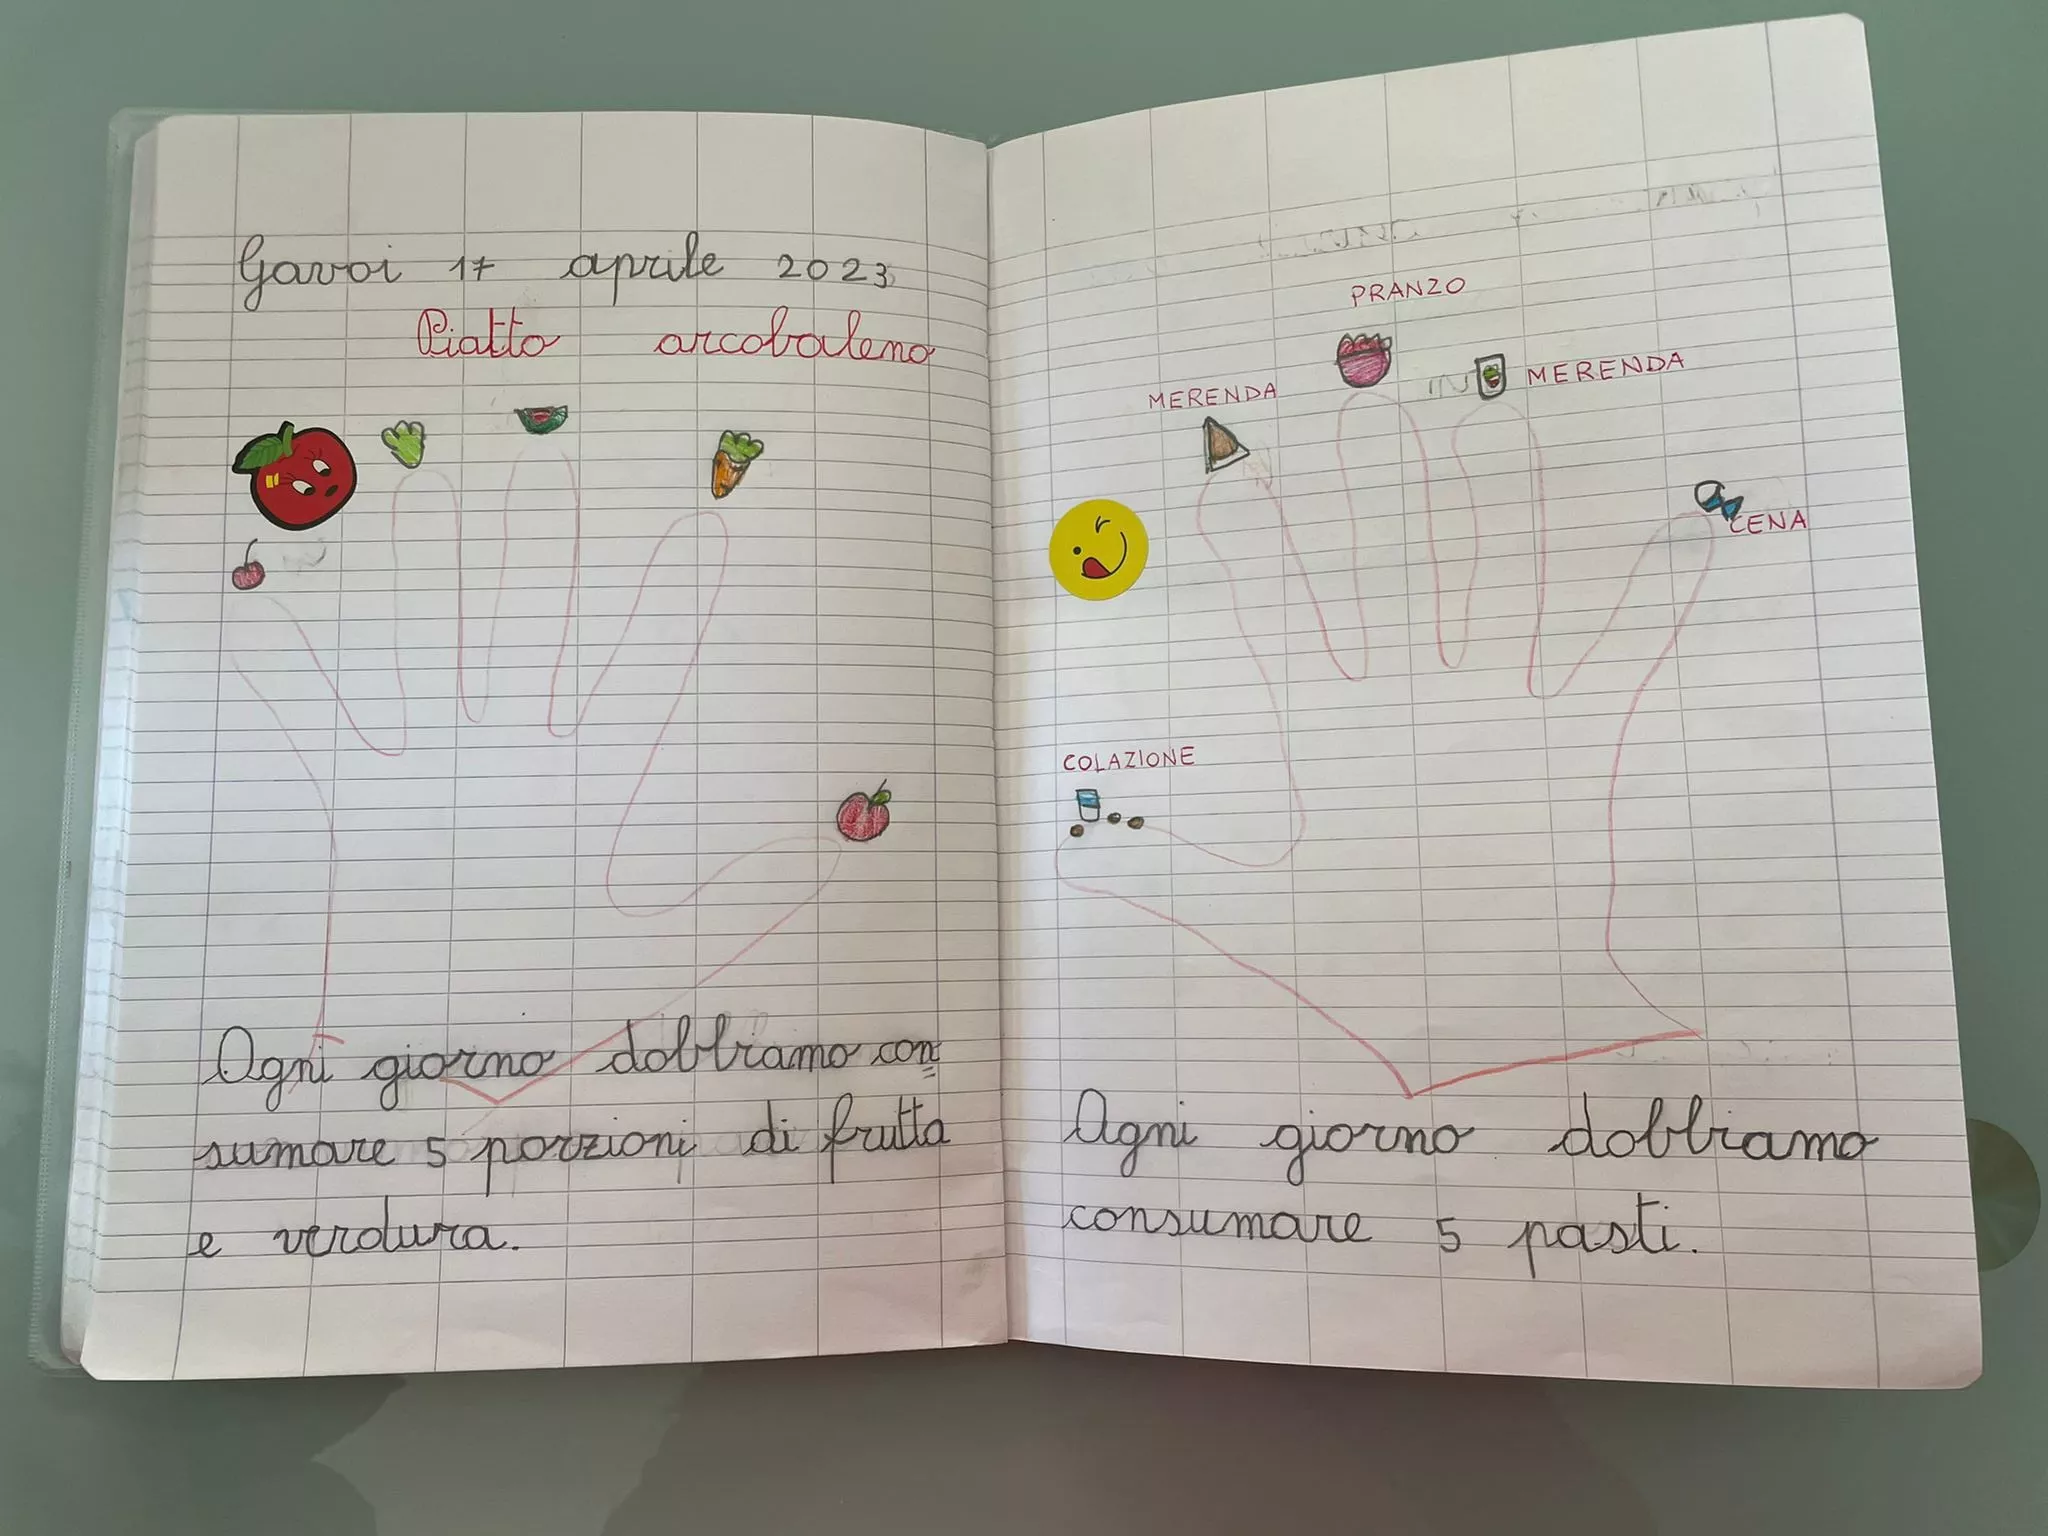 Gavoi 17 aprile 2023
Piatto arcobaleno
Ogni giorno dobbiamo con
sumare 5 porzioni di frutta
e verdura.
PRANZO
MERENDA
MERENDA
CENA
COLAZIONE
Ogni giorno dobbiamo
consumare 5 pasti.